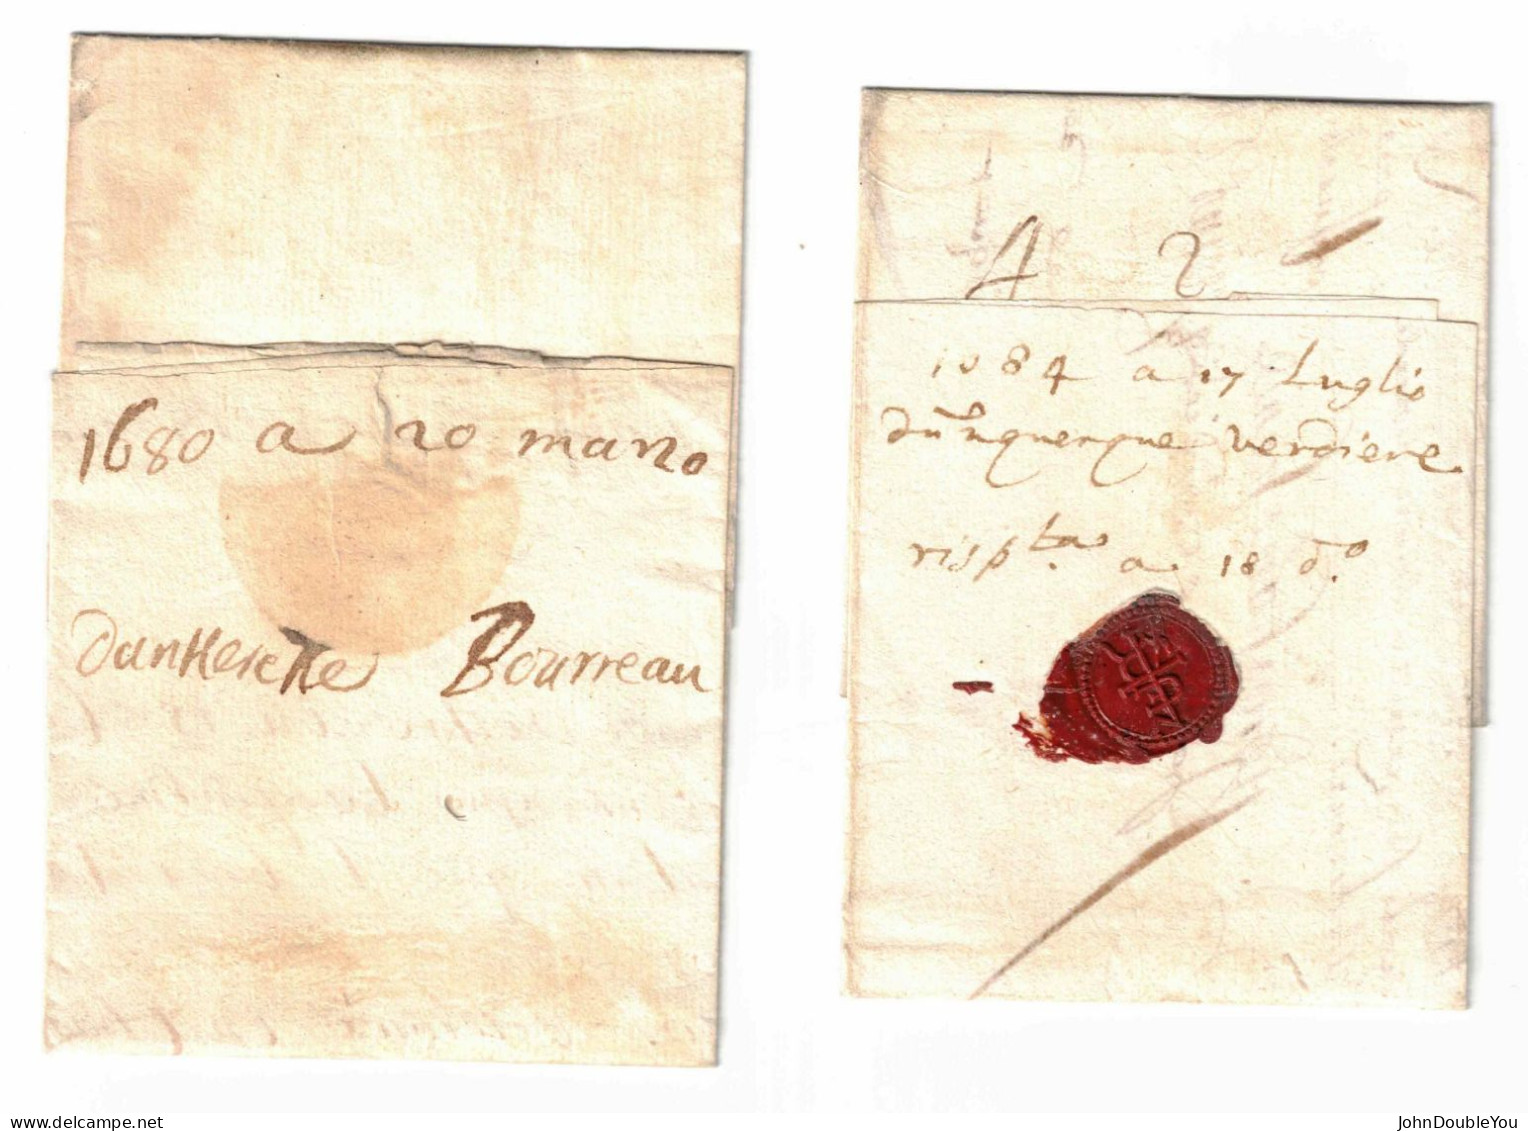 1680 a 20 marzo
Dunkercke Bourreau
A 2
1684 a 17 Luglio
Dunquerque Verdiere
risp.ta a 18 d.o
delcampe.net
JohnDoubleYou